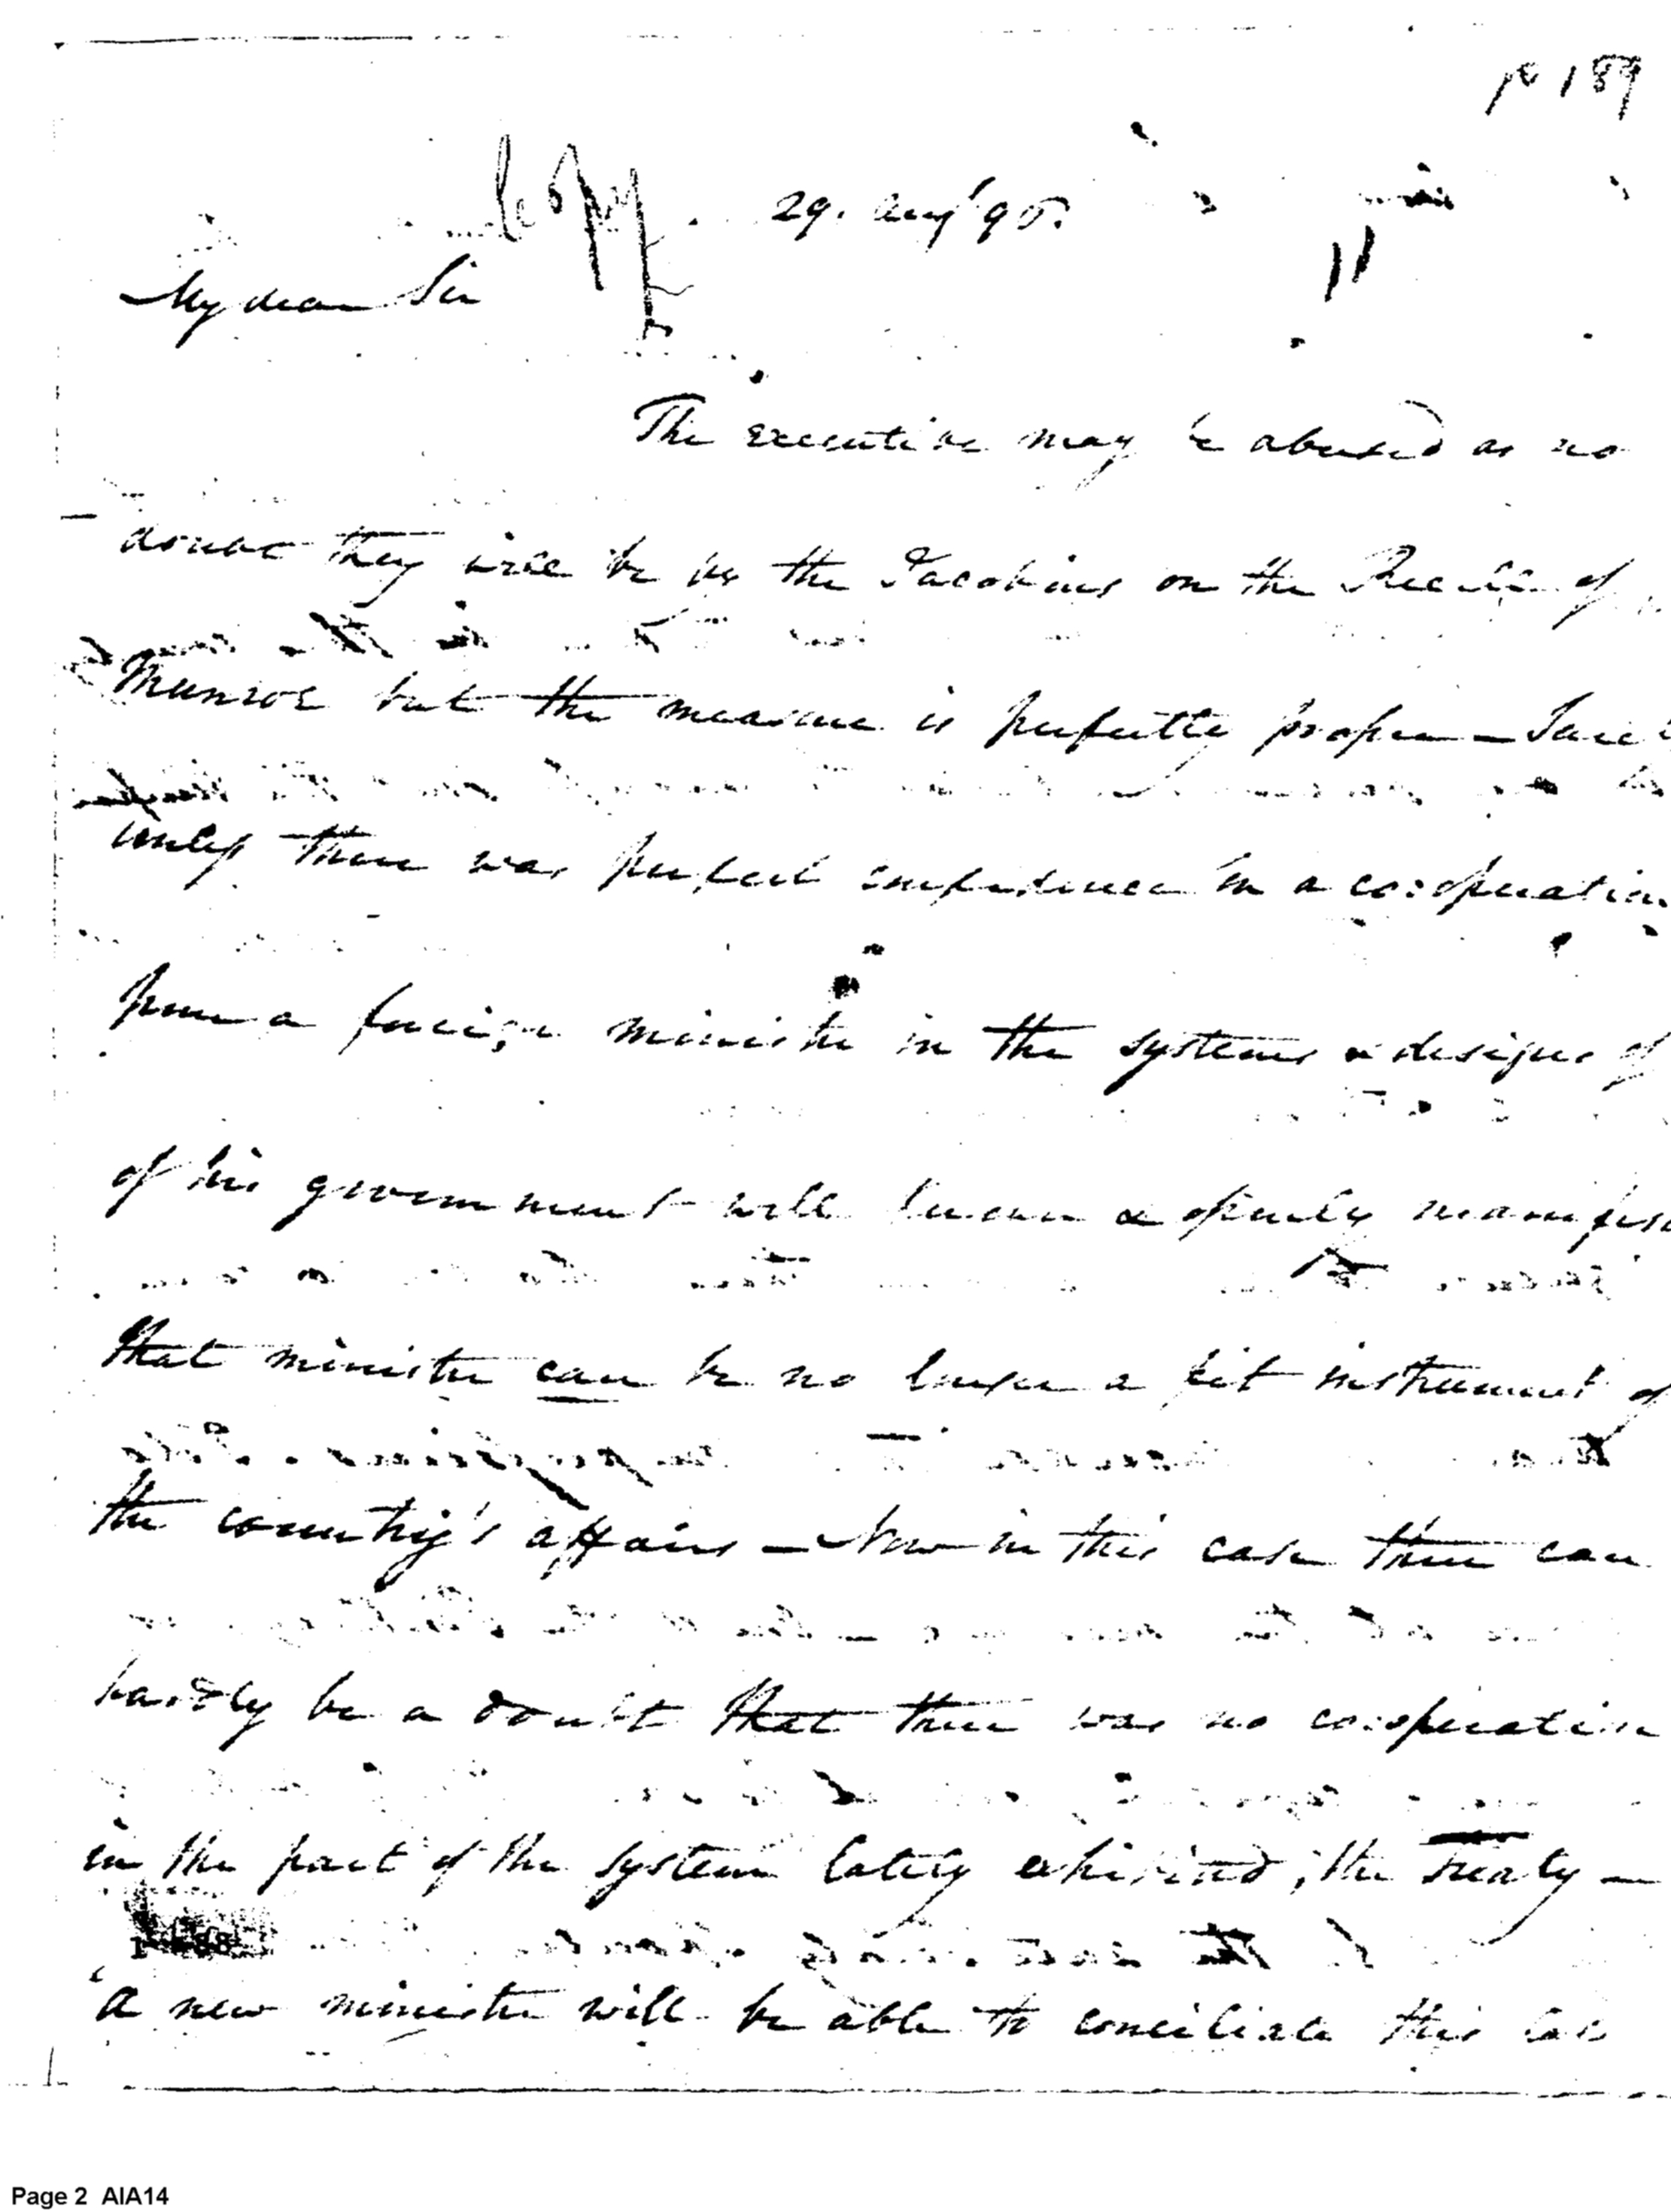 p 189
Copy. 29. Aug' 96.
My dear Sir
The executive may be abused as no
doubt they will be by the Jacobins on the Recall of
Munroe but the measure is perfectly proper —
unless there was perfect confidence in a co:operation
from a foreign minister in the systems & designs of
of his government well known & openly manifest
that minister can be no longer a fit instrument of
the country's affairs — Now in this case there can
hardly be a doubt that there was no co:operation
in the part of the system lately exhibited, the Treaty —
A new minister will be able to conciliate this
Page 2 AIA14